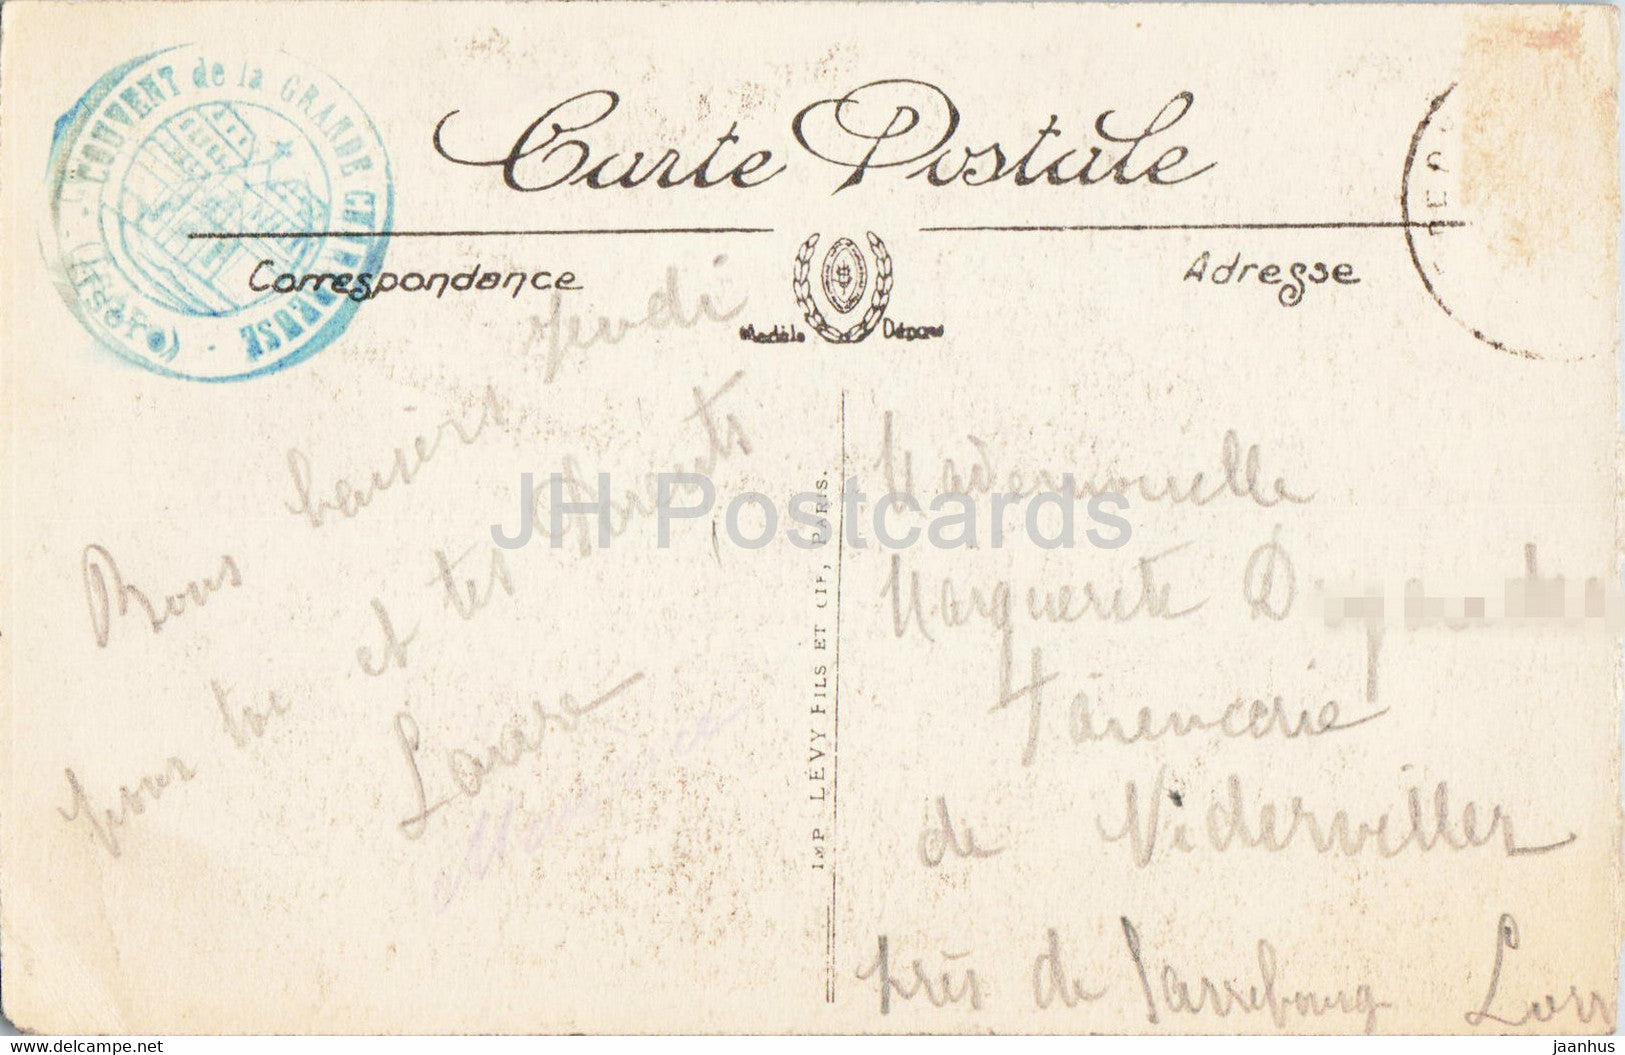 COUVENT de la GRANDE CHARTREUSE - (Isère) -
Carte Postale
Correspondance
Adresse
Modèle Déposé
Jeudi
Bons baisers
pour toi et tes Parents
Mademoiselle
Marguerite D
Faïencerie
de Niderviller
près de Sarrebourg Lorr
IMP LÉVY FILS ET CIE, PARIS.
JH Postcards
https://jh-postcards.com
jaanhus